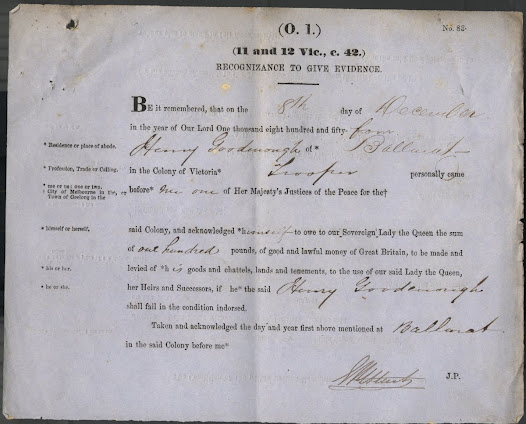 (O. 1.)
No. 82.
(11 and 12 Vic., c. 42.)
RECOGNIZANCE TO GIVE EVIDENCE.
BE it remembered, that on the 8th day of December
in the year of Our Lord One thousand eight hundred and fifty-four
* Residence or place of abode.
Henry Goodenough of * Ballarat
* Profession, Trade or Calling.
in the Colony of Victoria* Trooper personally came
* me or us; one or two.
City of Melbourne in the, or
Town of Geelong in the
before* me one of Her Majesty's Justices of the Peace for the†
* himself or herself.
said Colony, and acknowledged *himself to owe to our Sovereign Lady the Queen the sum
of one hundred pounds, of good and lawful money of Great Britain, to be made and
* his or her.
levied of *his goods and chattels, lands and tenements, to the use of our said Lady the Queen,
* he or she.
her Heirs and Successors, if he* the said Henry Goodenough
shall fail in the condition indorsed.
Taken and acknowledged the day and year first above mentioned at Ballarat
in the said Colony before me*
J.P.